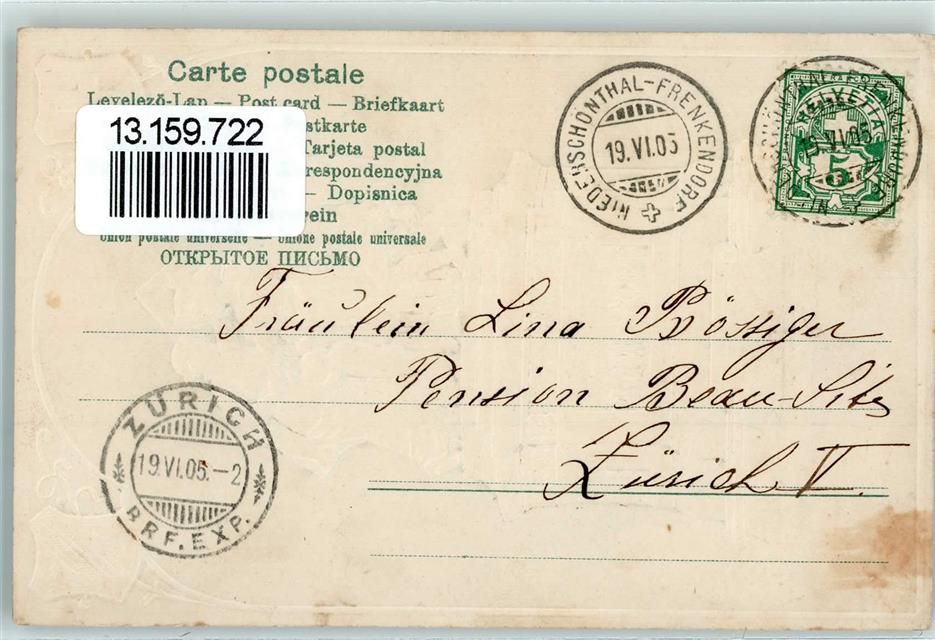 Carte postale
Levelező-Lap — Post card — Briefkaart
13.159.722
stkarte
Tarjeta postal
respondencyjna
— Dopisnica
rein
Union postale universelle — Unione postale universale
ОТКРЫТОЕ ПИСЬМО
NIEDERSCHÖNTHAL-FRENKENDORF
19.VI.05
HELVETIA
5
19.VI.05
Fräulein Lina Bössiger
Pension Beau-Site
Zürich V.
ZÜRICH
19.VI.05.–2
BRF. EXP.